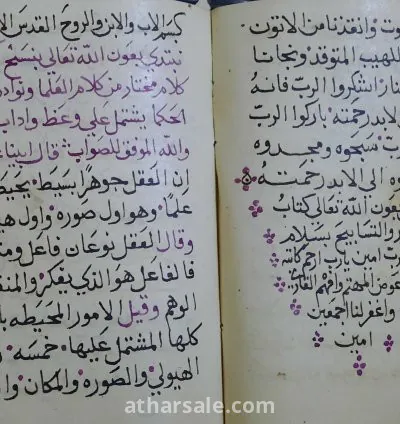 وت وانقذنا من الاتون
للهيب المتوقد ونجانا
نار اشكروا الرب فانه
لابد رحمته باركوا الرب
ب سبحوه ومجدوه
ه الى الابد رحمته
عون الله تعالى كتاب
ر والتسابيح بسلام
رب امين يارب ارحم كاتبه
عوض المهتم وافهم القاري
واغفر لنا اجمعين
امين
بسم الاب والابن والروح القدس
نبتدي بعون الله تعالى بنسخ
كلام مختار من كلام العلما ونواد
الحكما يشتمل على وعظ واداب
والله الموفق للصواب قال ابينا
ان العقل جوهرا بسيط يحيط
علما وهو اول صوره واول هي
وقال العقل نوعان فاعل ومن
فالفاعل هو الذي يفكر والمنف
الوهم وقيل الامور المحيطه با
كلها المشتمل عليها خمسه
الهيولي والصوره والمكان وا
atharsale.com